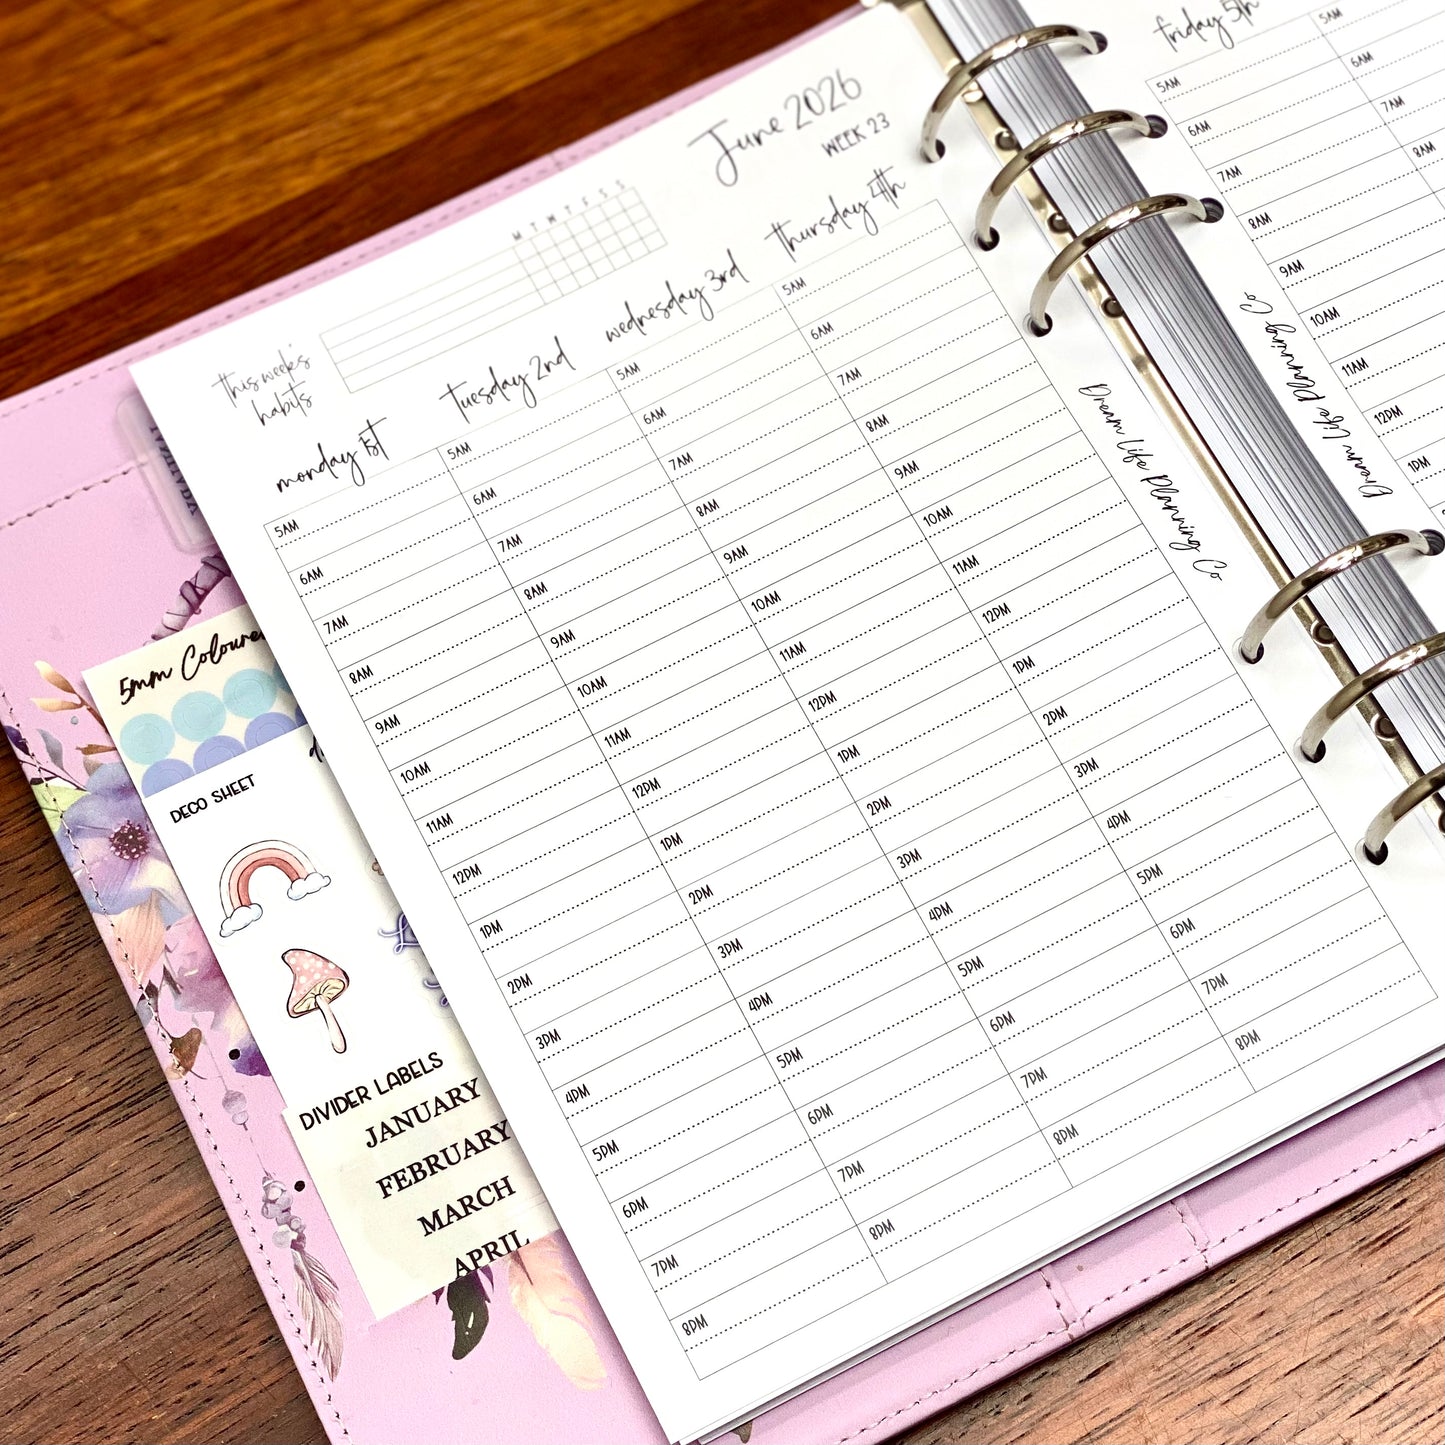 June 2026
WEEK 23
M T W T F S S
this week's
habits
monday 1st
5AM
6AM
7AM
8AM
9AM
10AM
11AM
12PM
1PM
2PM
3PM
4PM
5PM
6PM
7PM
8PM
tuesday 2nd
5AM
6AM
7AM
8AM
9AM
10AM
11AM
12PM
1PM
2PM
3PM
4PM
5PM
6PM
7PM
8PM
wednesday 3rd
5AM
6AM
7AM
8AM
9AM
10AM
11AM
12PM
1PM
2PM
3PM
4PM
5PM
6PM
7PM
8PM
thursday 4th
5AM
6AM
7AM
8AM
9AM
10AM
11AM
12PM
1PM
2PM
3PM
4PM
5PM
6PM
7PM
8PM
Dream Life Planning Co
Dream Life Planning Co
friday 5th
5AM
6AM
7AM
8AM
9AM
10AM
11AM
12PM
1PM
5AM
6AM
7AM
8AM
5mm Coloured
DECO SHEET
DIVIDER LABELS
JANUARY
FEBRUARY
MARCH
APRIL